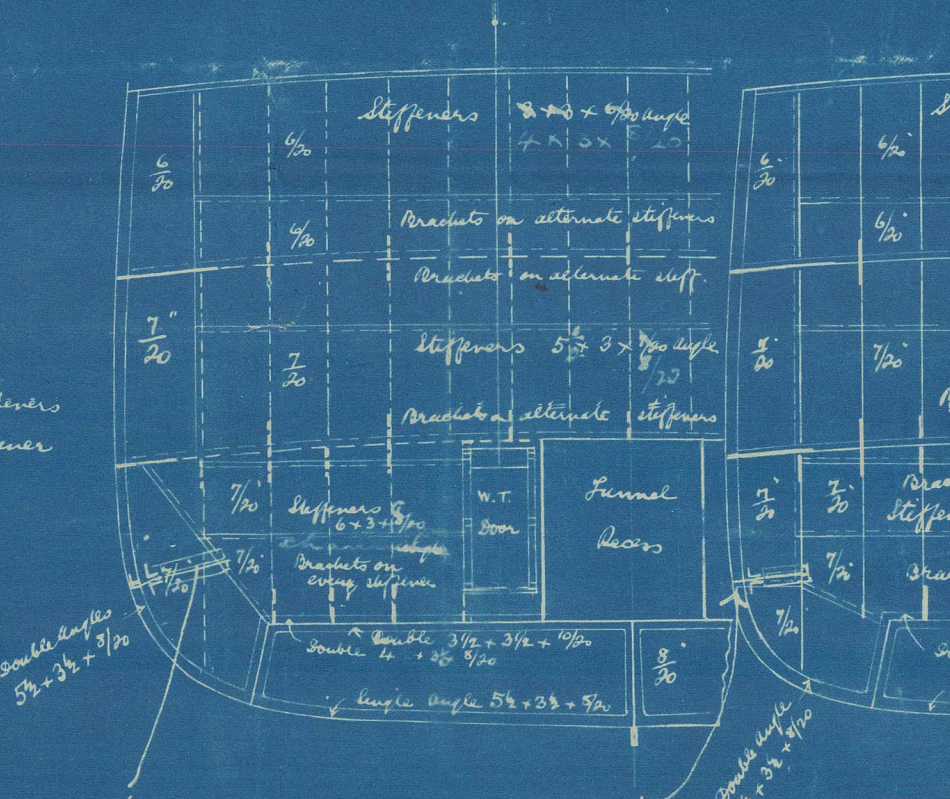 Stiffeners 3 × 3 × 6/20 Angle
4 × 3 × 8/20
6/20
6/20
Brackets on alternate stiffeners
6/20
Brackets on alternate stiff.
7/20"
Stiffeners 5½ × 3 × 7/20 Angle
8/20
7/20
Brackets on alternate stiffeners
7/20
Stiffeners
6 × 3 × 8/20
W.T.
Door
Tunnel
Recess
Brackets on
every stiffener
7/20
7/20
Double Angles
5½ × 3½ × 8/20
Double 3½ × 3½ × 10/20
Double 4
8/20
Single Angle 5½ × 3½ × 8/20
8/20
6/20
6/20
6/20
7/20
7/20
7/20
7/20
7/20
7/20
Double Angle
× 3½ × 8/20